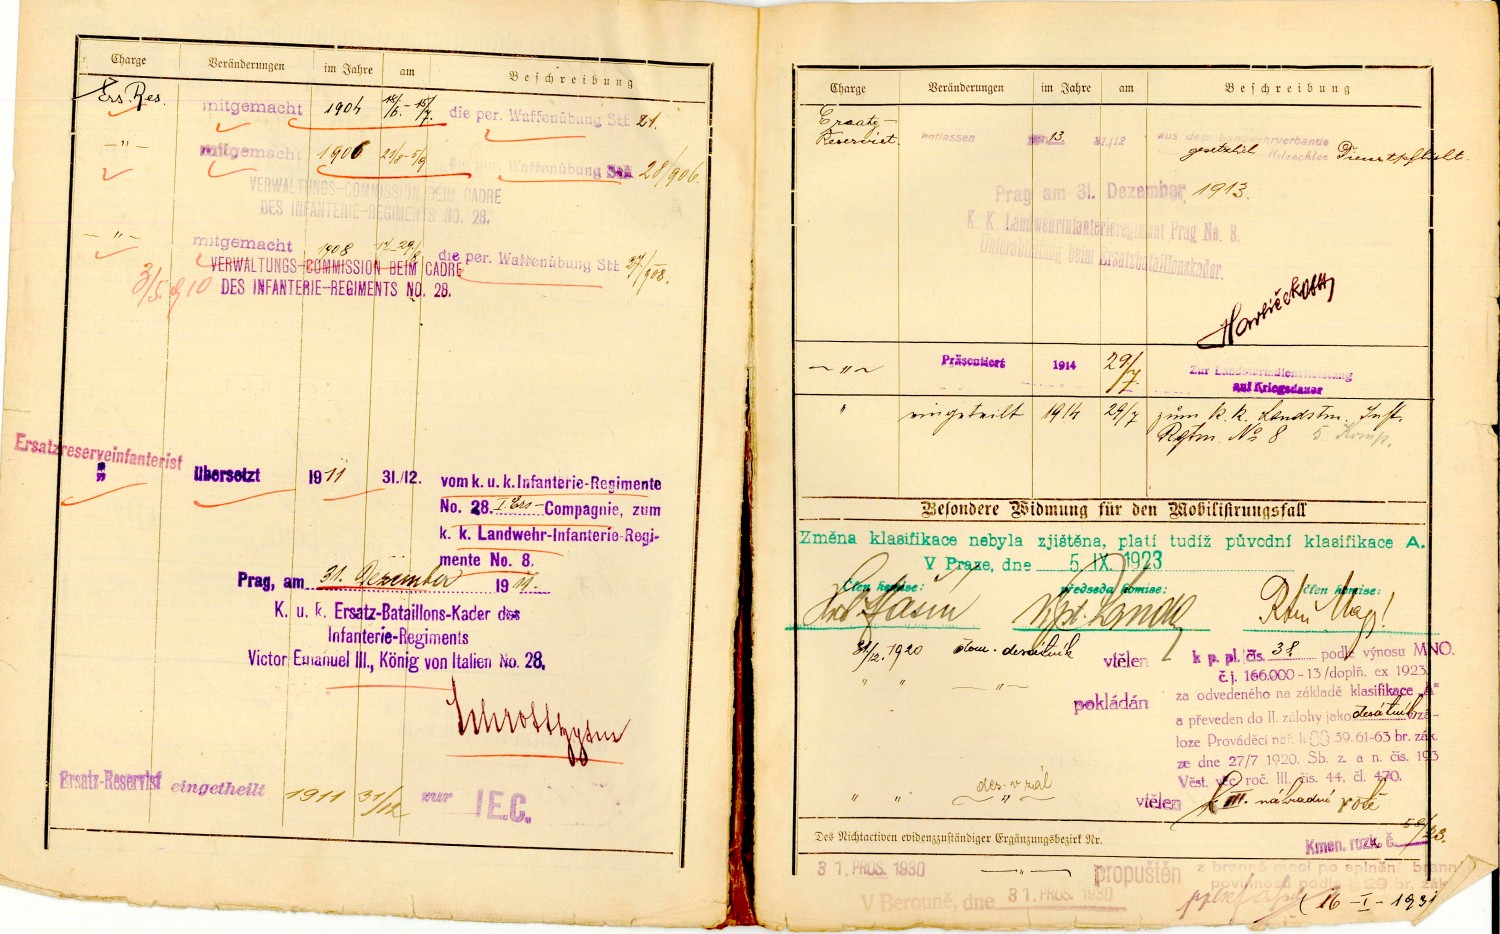 Charge Veränderungen im Jahre am Beschreibung
Ers. Res. mitgemacht 1904 die per. Waffenübung StB 21.
-"- mitgemacht 1906 21/8-5/9 die per. Waffenübung StB 28/906.
VERWALTUNGS-COMMISSION BEIM CADRE
DES INFANTERIE-REGIMENTS NO. 28.
-"- mitgemacht 1908 die per. Waffenübung StB 27/908.
VERWALTUNGS-COMMISSION BEIM CADRE
3/5. 10 DES INFANTERIE-REGIMENTS NO. 28.
Ersatzreserveinfanterist
übersetzt 1911 31./12. vom k. u. k. Infanterie-Regimente
No. 28. I. Ers- Compagnie, zum
k. k. Landwehr-Infanterie-Regi-
mente No. 8.
Prag, am 31. Dezember 1911.
K. u. k. Ersatz-Bataillons-Kader des
Infanterie-Regiments
Victor Emanuel III., König von Italien No. 28.
Ersatz-Reservist eingetheilt 1911 31/12 zur I.E.C.
Charge Veränderungen im Jahre am Beschreibung
Ersatz-
Reservist. entlassen 1913 31./12 aus dem Landwehrverbande
gesetzlich Dienstpflicht.
Prag am 31. Dezember 1913.
K. K. Landwehrinfanterieregiment Prag No. 8.
Unterabteilung beim Ersatzbataillonskader.
-"- Präsentiert 1914 29/7. Zur Landsturmdienstleistung
auf Kriegsdauer
" eingeteilt 1914 29/7 zum k. k. Landstm. Inft.
Rgtm. No 8 5. Komp.
Besondere Widmung für den Mobilisirungsfall
Změna klasifikace nebyla zjištěna, platí tudíž původní klasifikace A.
V Praze, dne 5. IX. 1923
Člen komise: předseda komise: člen komise:
31/12. 1920 desátník vtělen k p. pl. čís. 38. podle výnosu MNO.
č. j. 166.000-13/doplň. ex 1923
" " -"- pokládán za odvedeného na základě klasifikace „A"
a převeden do II. zálohy jako desátník v zá-
loze Prováděcí nař. k §§ 59. 61-63 br. zák.
ze dne 27/7 1920. Sb. z. a n. čís. 193
Věst. věc. roč. III. čís. 44, čl. 470.
des. v zál
" " " vtělen k III. náhradní rotě
Des Nichtactiven evidenzzuständiger Ergänzungsbezirk Nr.
Kmen. rozk. č. 58/23.
31. PROS. 1930 -"- propuštěn z branné moci po splnění brann
povinnosti podle § 29 br. zák.
V Berouně, dne 31. PROS. 1930
16 -I- 1931